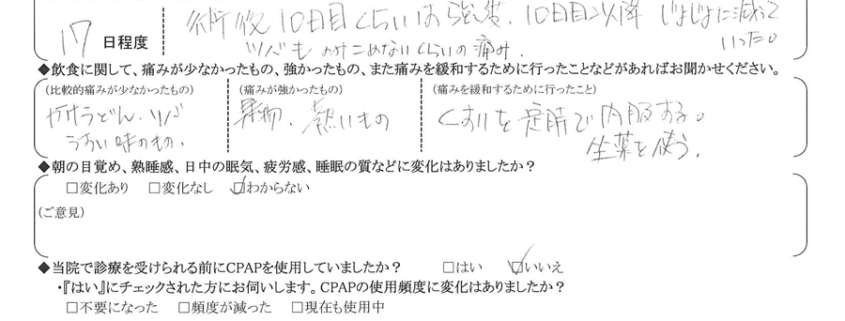 17 日程度
術後10日目くらいは強度、10日目以降 じょじょに減って
いった。
ツバも のみこめないくらいの痛み.
◆飲食に関して、痛みが少なかったもの、強かったもの、また痛みを緩和するために行ったことなどがあればお聞かせください。
(比較的痛みが少なかったもの)
うどん、ツバ
うすい味のもの.
(痛みが強かったもの)
果物、熱いもの
(痛みを緩和するために行ったこと)
くすりを定時で内服する。
生薬を使う.
◆朝の目覚め、熟睡感、日中の眠気、疲労感、睡眠の質などに変化はありましたか?
□変化あり □変化なし ☑わからない
(ご意見)
◆当院で診療を受けられる前にCPAPを使用していましたか? □はい ☑いいえ
・『はい』にチェックされた方にお伺いします。CPAPの使用頻度に変化はありましたか?
□不要になった □頻度が減った □現在も使用中